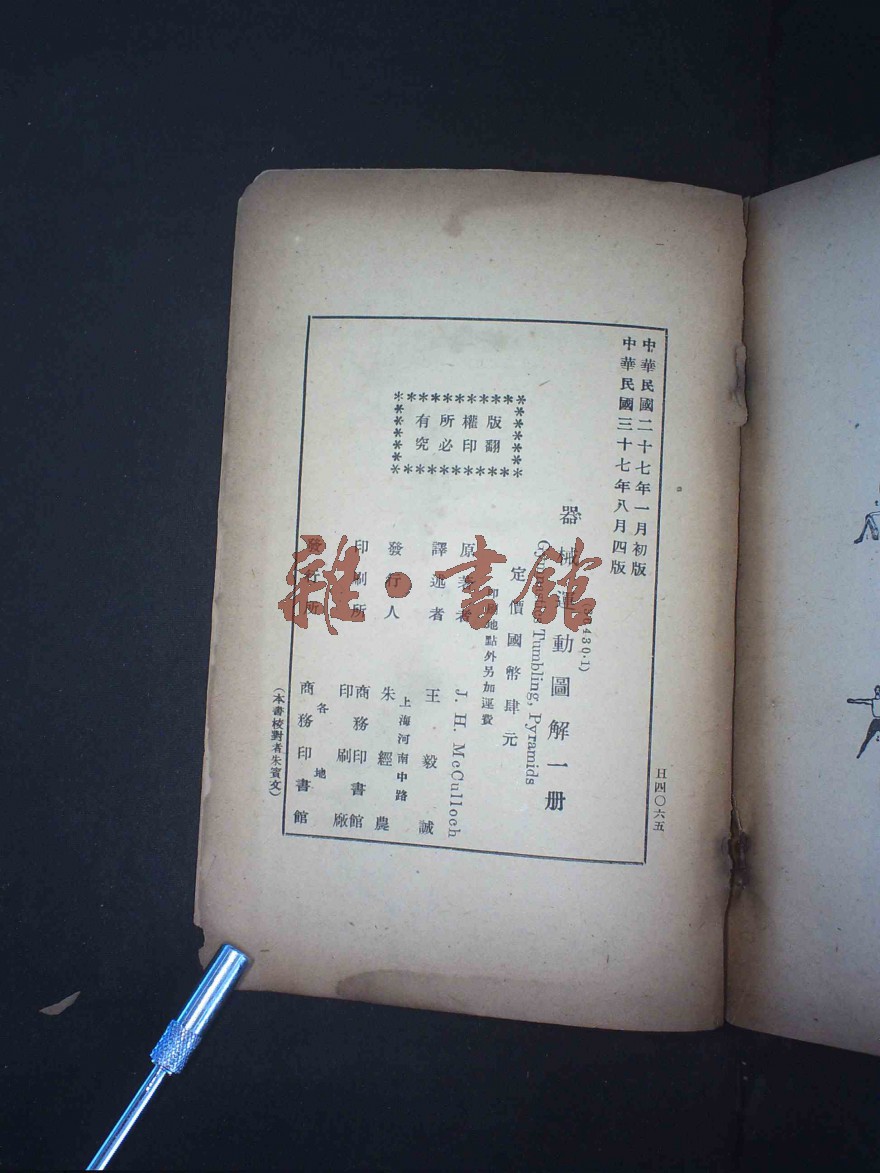 中華民國二十七年一月初版
中華民國三十七年八月四版
430·1)
器械運動圖解一册
Tumbling, Pyramids
定價國幣肆元
地點外另加運費
版權所有
翻印必究
原著者 J. H. McCulloch
譯述者 王毅誠
上海河南中路
發行人 朱經農
印刷所 商務印書館
印刷廠
各地
發行所 商務印書館
(本書校對者朱寶文)
四〇六五
雜·書館